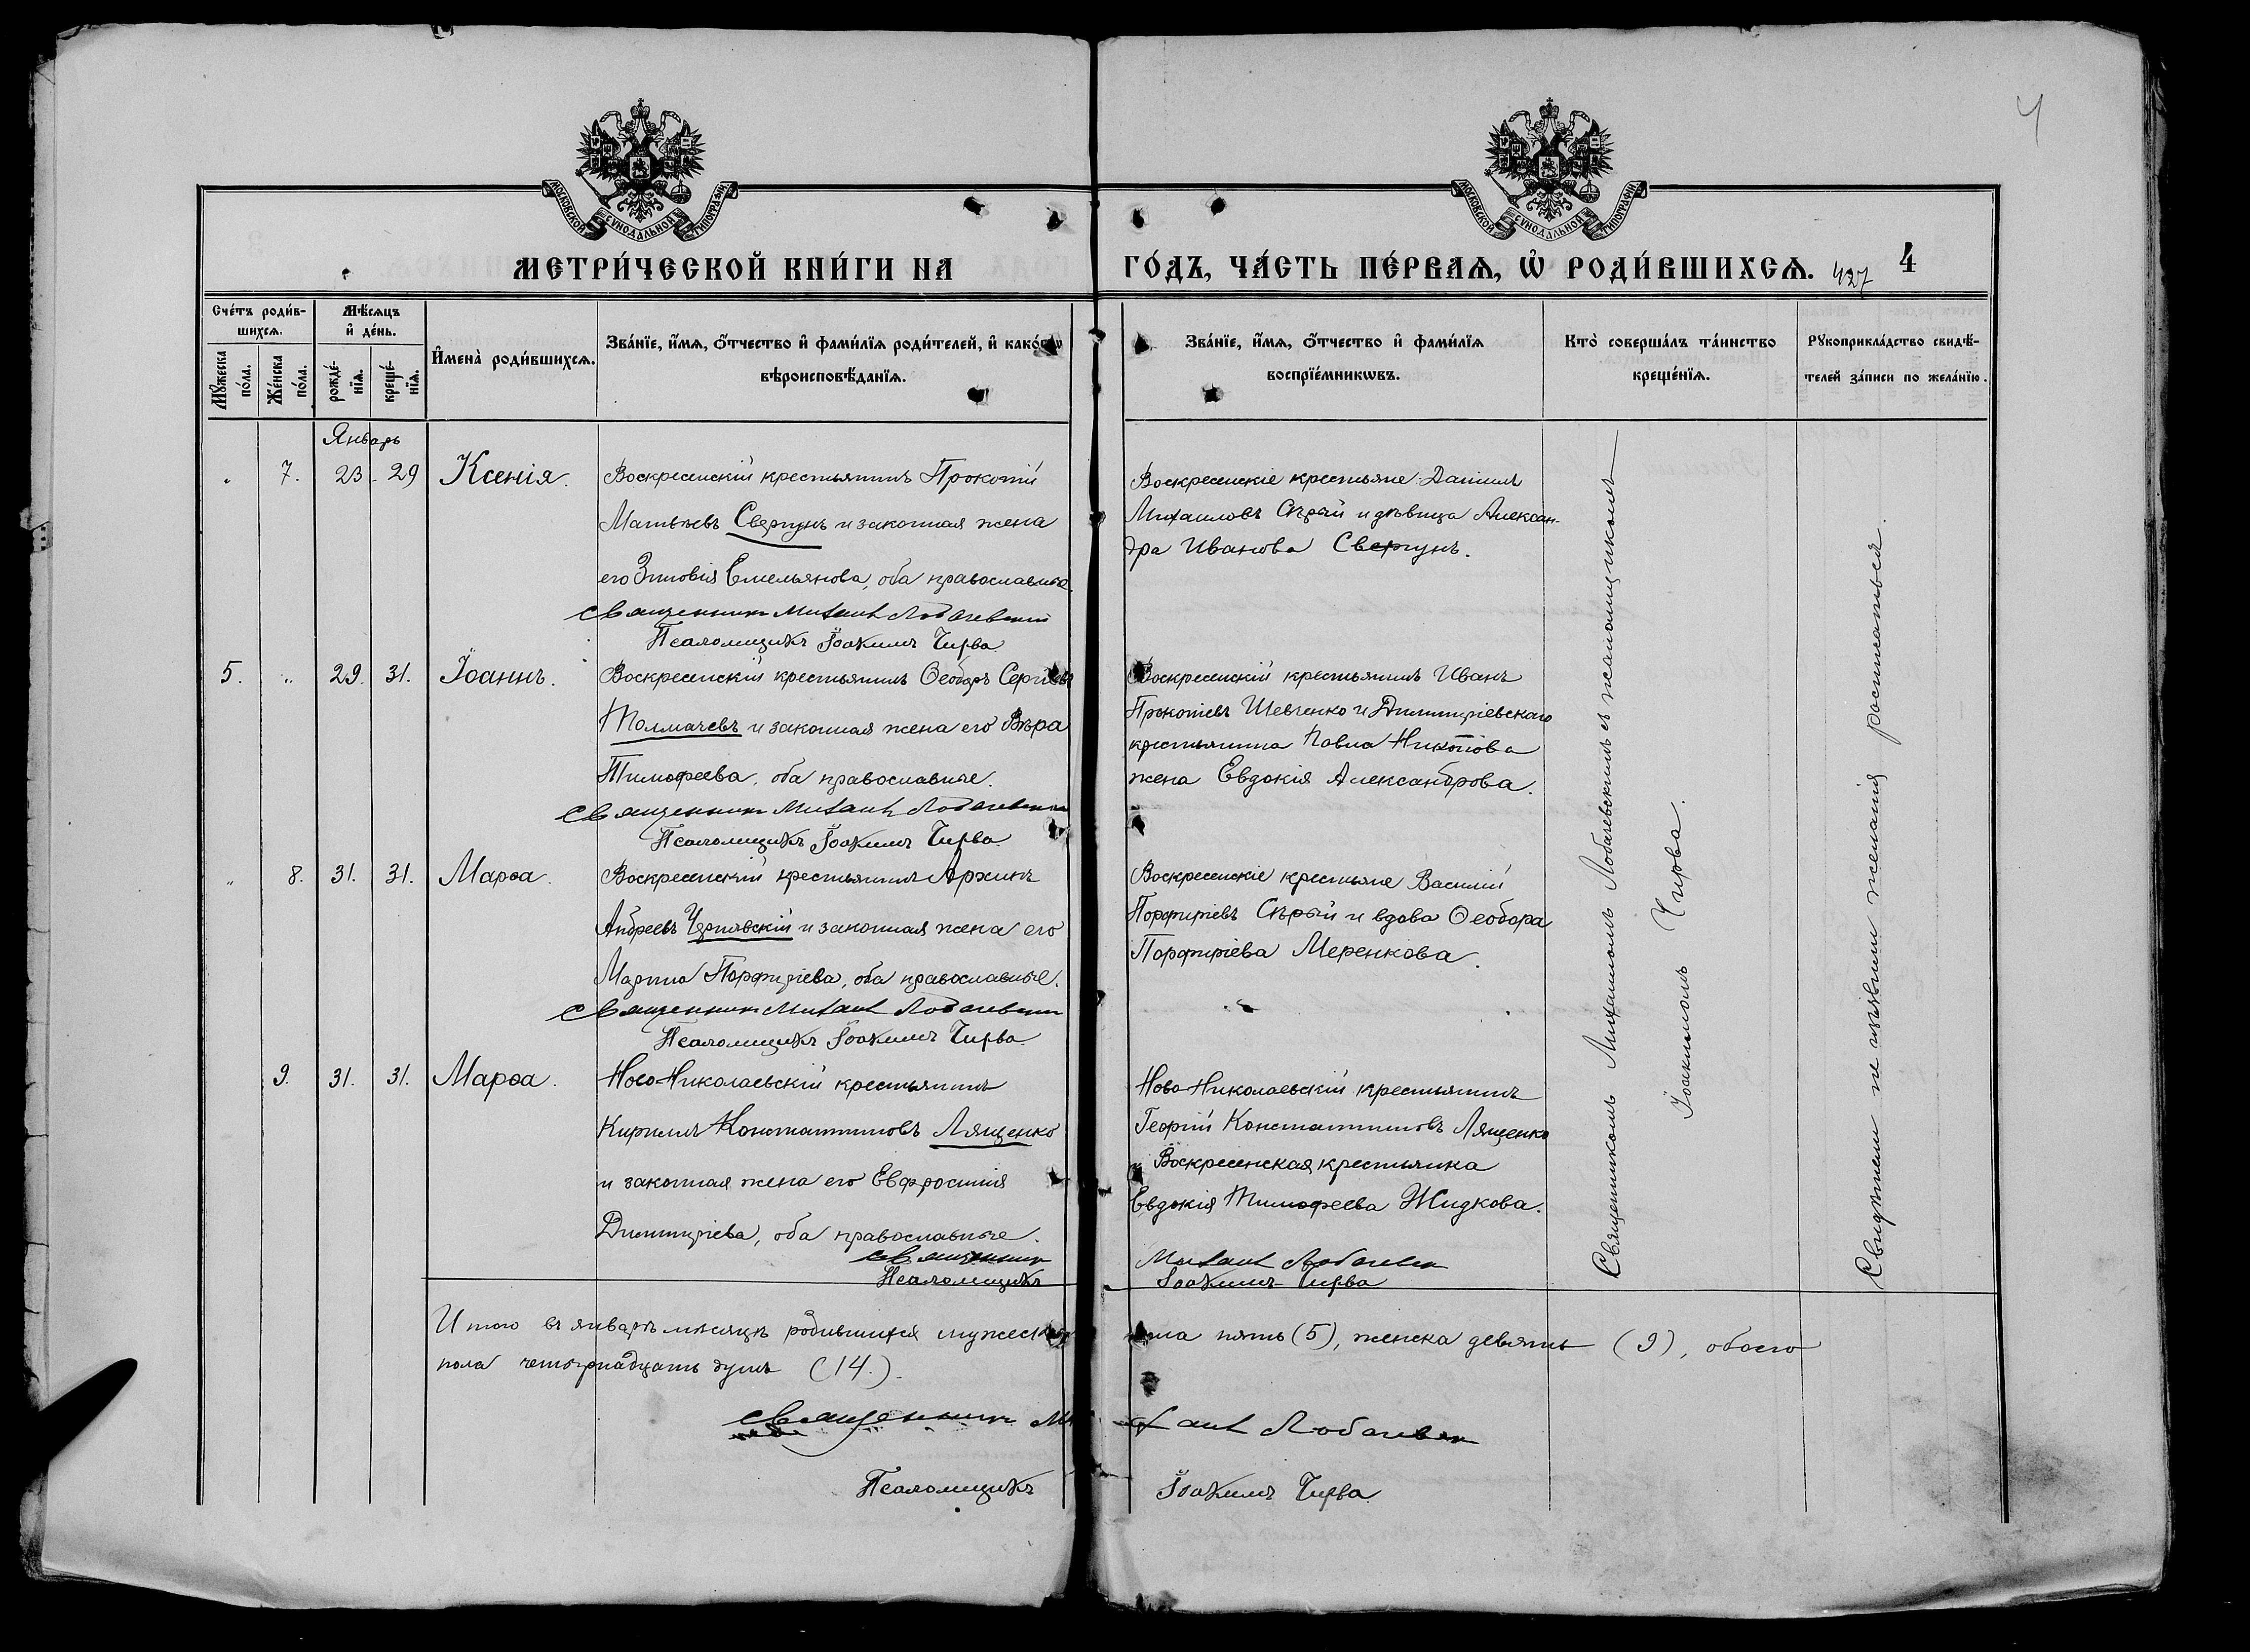 4
МОСКОВСКОЙ СѴНОДАЛЬНОЙ ТИПОГРАФІИ
МОСКОВСКОЙ СѴНОДАЛЬНОЙ ТИПОГРАФІИ
МЕТРИ́ЧЕСКОЙ КНИ́ГИ НА
ГО́ДЪ, ЧА́СТЬ ПЕ́РВАѦ, Ѽ РОДИ́ВШИХСѦ.
427
4
Сче́тъ роди́в-
шихсѧ.
Мꙋжеска
по́ла.
Же́нска
по́ла.
Мѣ́сѧцъ
и҆ де́нь.
рожде́-
нїѧ.
креще́-
нїѧ.
И҆мена̀ роди́вшихсѧ.
Зва́нїе, и҆́мѧ, ѻ҆́тчество и҆ фами́лїѧ роди́телей, и҆ како́гѡ
вѣроисповѣ́данїѧ.
Зва́нїе, и҆́мѧ, ѻ҆́тчество и҆ фами́лїѧ
воспрїе́мникѡвъ.
Кто̀ соверша́лъ та́инство
креще́нїѧ.
Рꙋкоприкла́дство свидѣ́-
телей за́писи по жела́нїю.
Январь
„ 7. 23 - 29 Ксенія.
Воскресенскій крестьянинъ Прокопій
Матвѣевъ Свергунъ и законная жена
его Зиновія Емельянова, оба православные.
Священникъ Михаилъ Лобачевскій
Псаломщикъ Іоакимъ Чирва
Воскресенскіе крестьяне: Даніилъ
Михаиловъ Сѣрый и дѣвица Алексан-
дра Иванова Свергунъ.
5. „ 29. 31. Іоаннъ.
Воскресенскій крестьянинъ Ѳеодоръ Сергѣевъ
Толмачевъ и законная жена его Вѣра
Тимофеева, оба православные.
Священникъ Михаилъ Лобачевскій
Псаломщикъ Іоакимъ Чирва
Воскресенскій крестьянинъ Иванъ
Прокопіевъ Шевченко и Димитріевскаго
крестьянина Павла
жена Евдокія Александрова.
„ 8. 31. 31. Марѳа.
Воскресенскій крестьянинъ
Андреевъ Чернявскій и законная жена его
Марина Порфиріева, оба православные.
Священникъ Михаилъ Лобачевскій
Псаломщикъ Іоакимъ Чирва
Воскресенскіе крестьяне Василій
Порфиріевъ Сѣрый и вдова Ѳеодора
Порфиріева Меренкова.
9. 31. 31. Марѳа.
Ново-Николаевскій крестьянинъ
Кириллъ Константиновъ Лященко
и законная жена его Евфросинія
Димитріева, оба православные.
Священникъ
Псаломщикъ
Ново-Николаевскій крестьянинъ
Георгій Константиновъ Лященко
и Воскресенская крестьянка
Евдокія Тимофеева Жидкова.
Михаилъ Лобачевскій
Іоакимъ Чирва
Священникомъ Михаиломъ Лобачевскимъ съ псаломщикомъ
Іоакимомъ Чирва.
Свидѣтели не изъявили желанія росписаться.
Итого въ январѣ мѣсяцѣ родившихся мужеска
пола пять (5), женска девять (9), обоего
пола четырнадцать душъ (14.).
Священникъ Михаилъ Лобачевскій
Псаломщикъ Іоакимъ Чирва